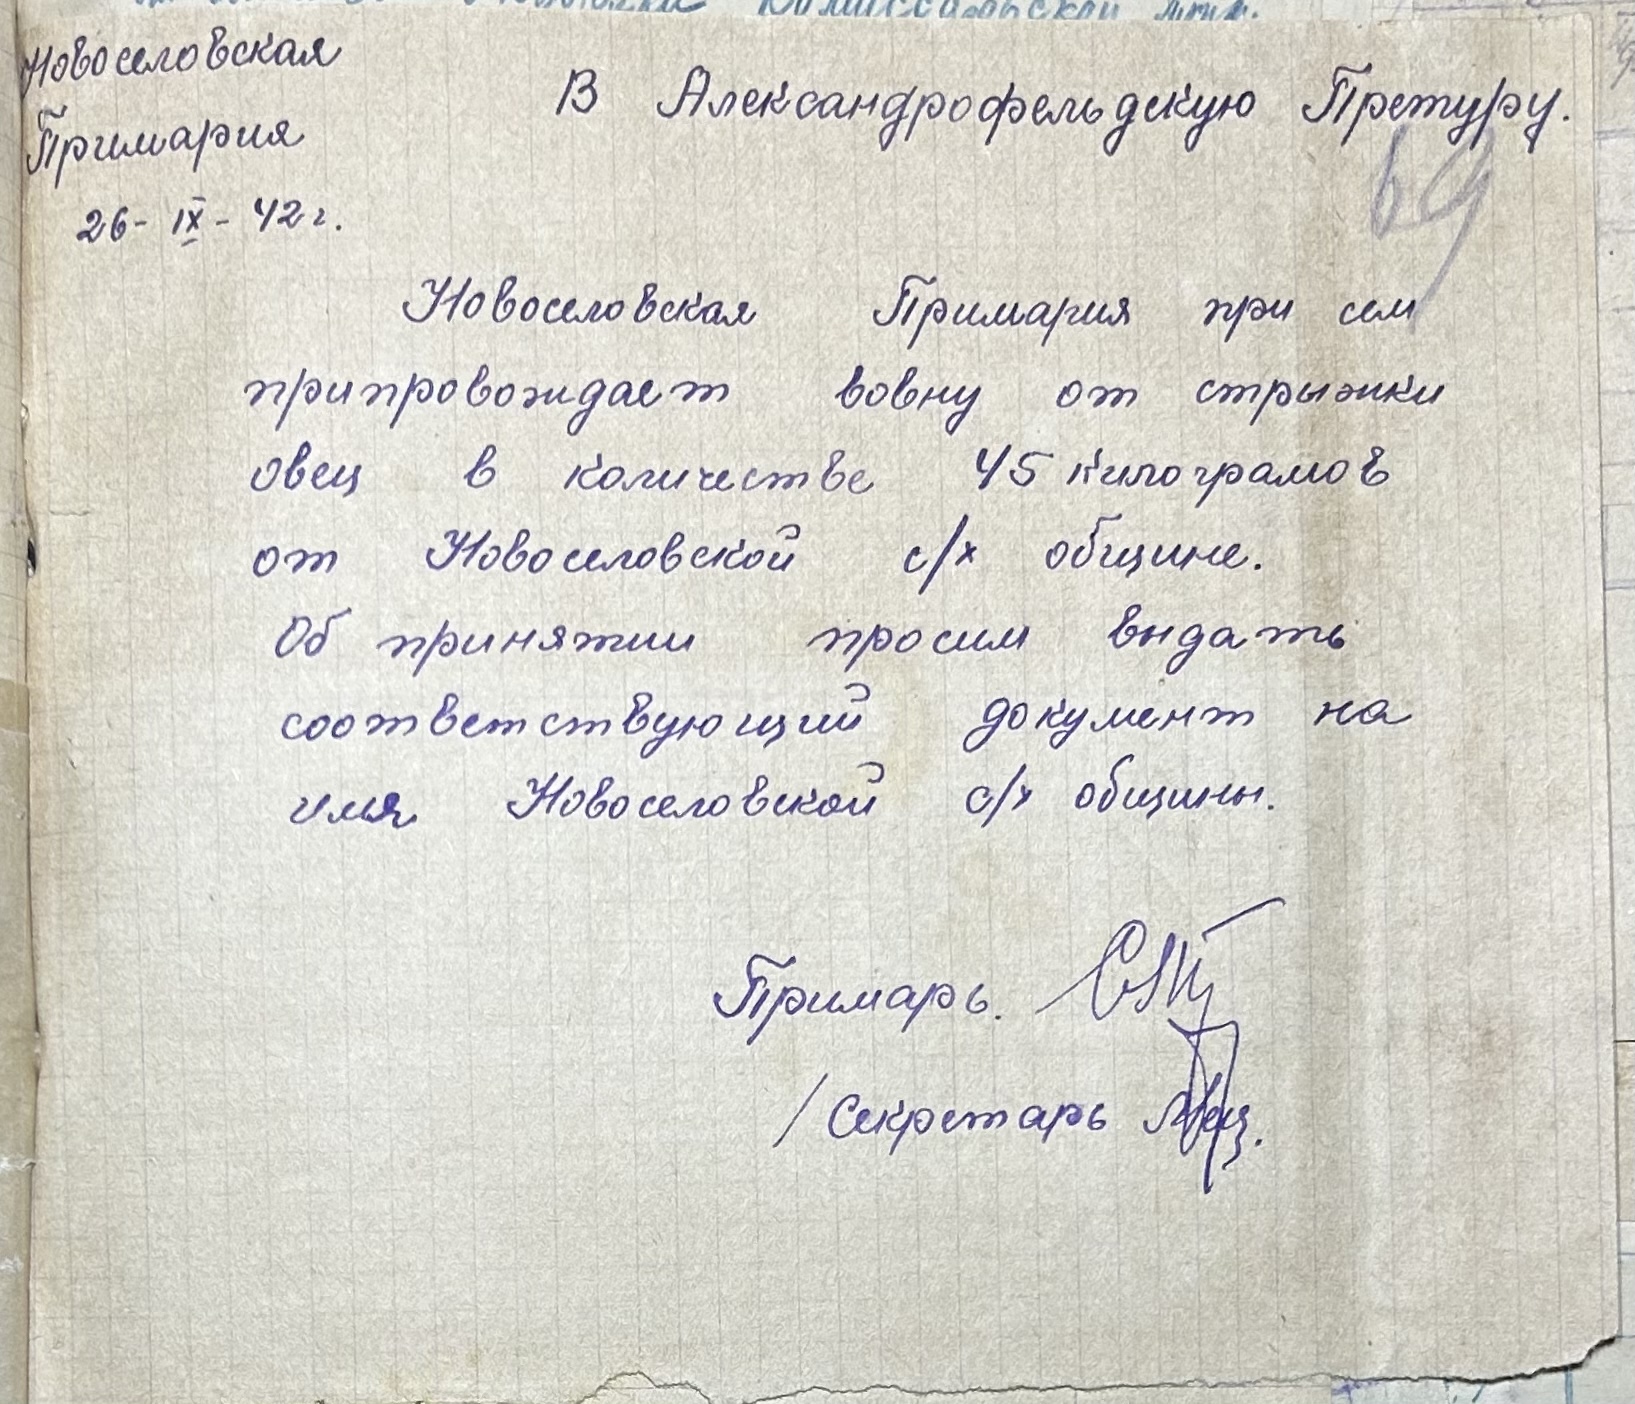 Комиссарской
Новоселовская
Примария
26-IX-42г.
В Александрофельдскую Претуру.
69
Новоселовская Примария при сем
припровождает вовну от стрыжки
овец в количестве 45 килограмов
от Новоселовской с/х общине.
Об принятии просим выдать
соответствующий документ на
имя Новоселовской с/х общины.
Примарь.
/Секретарь